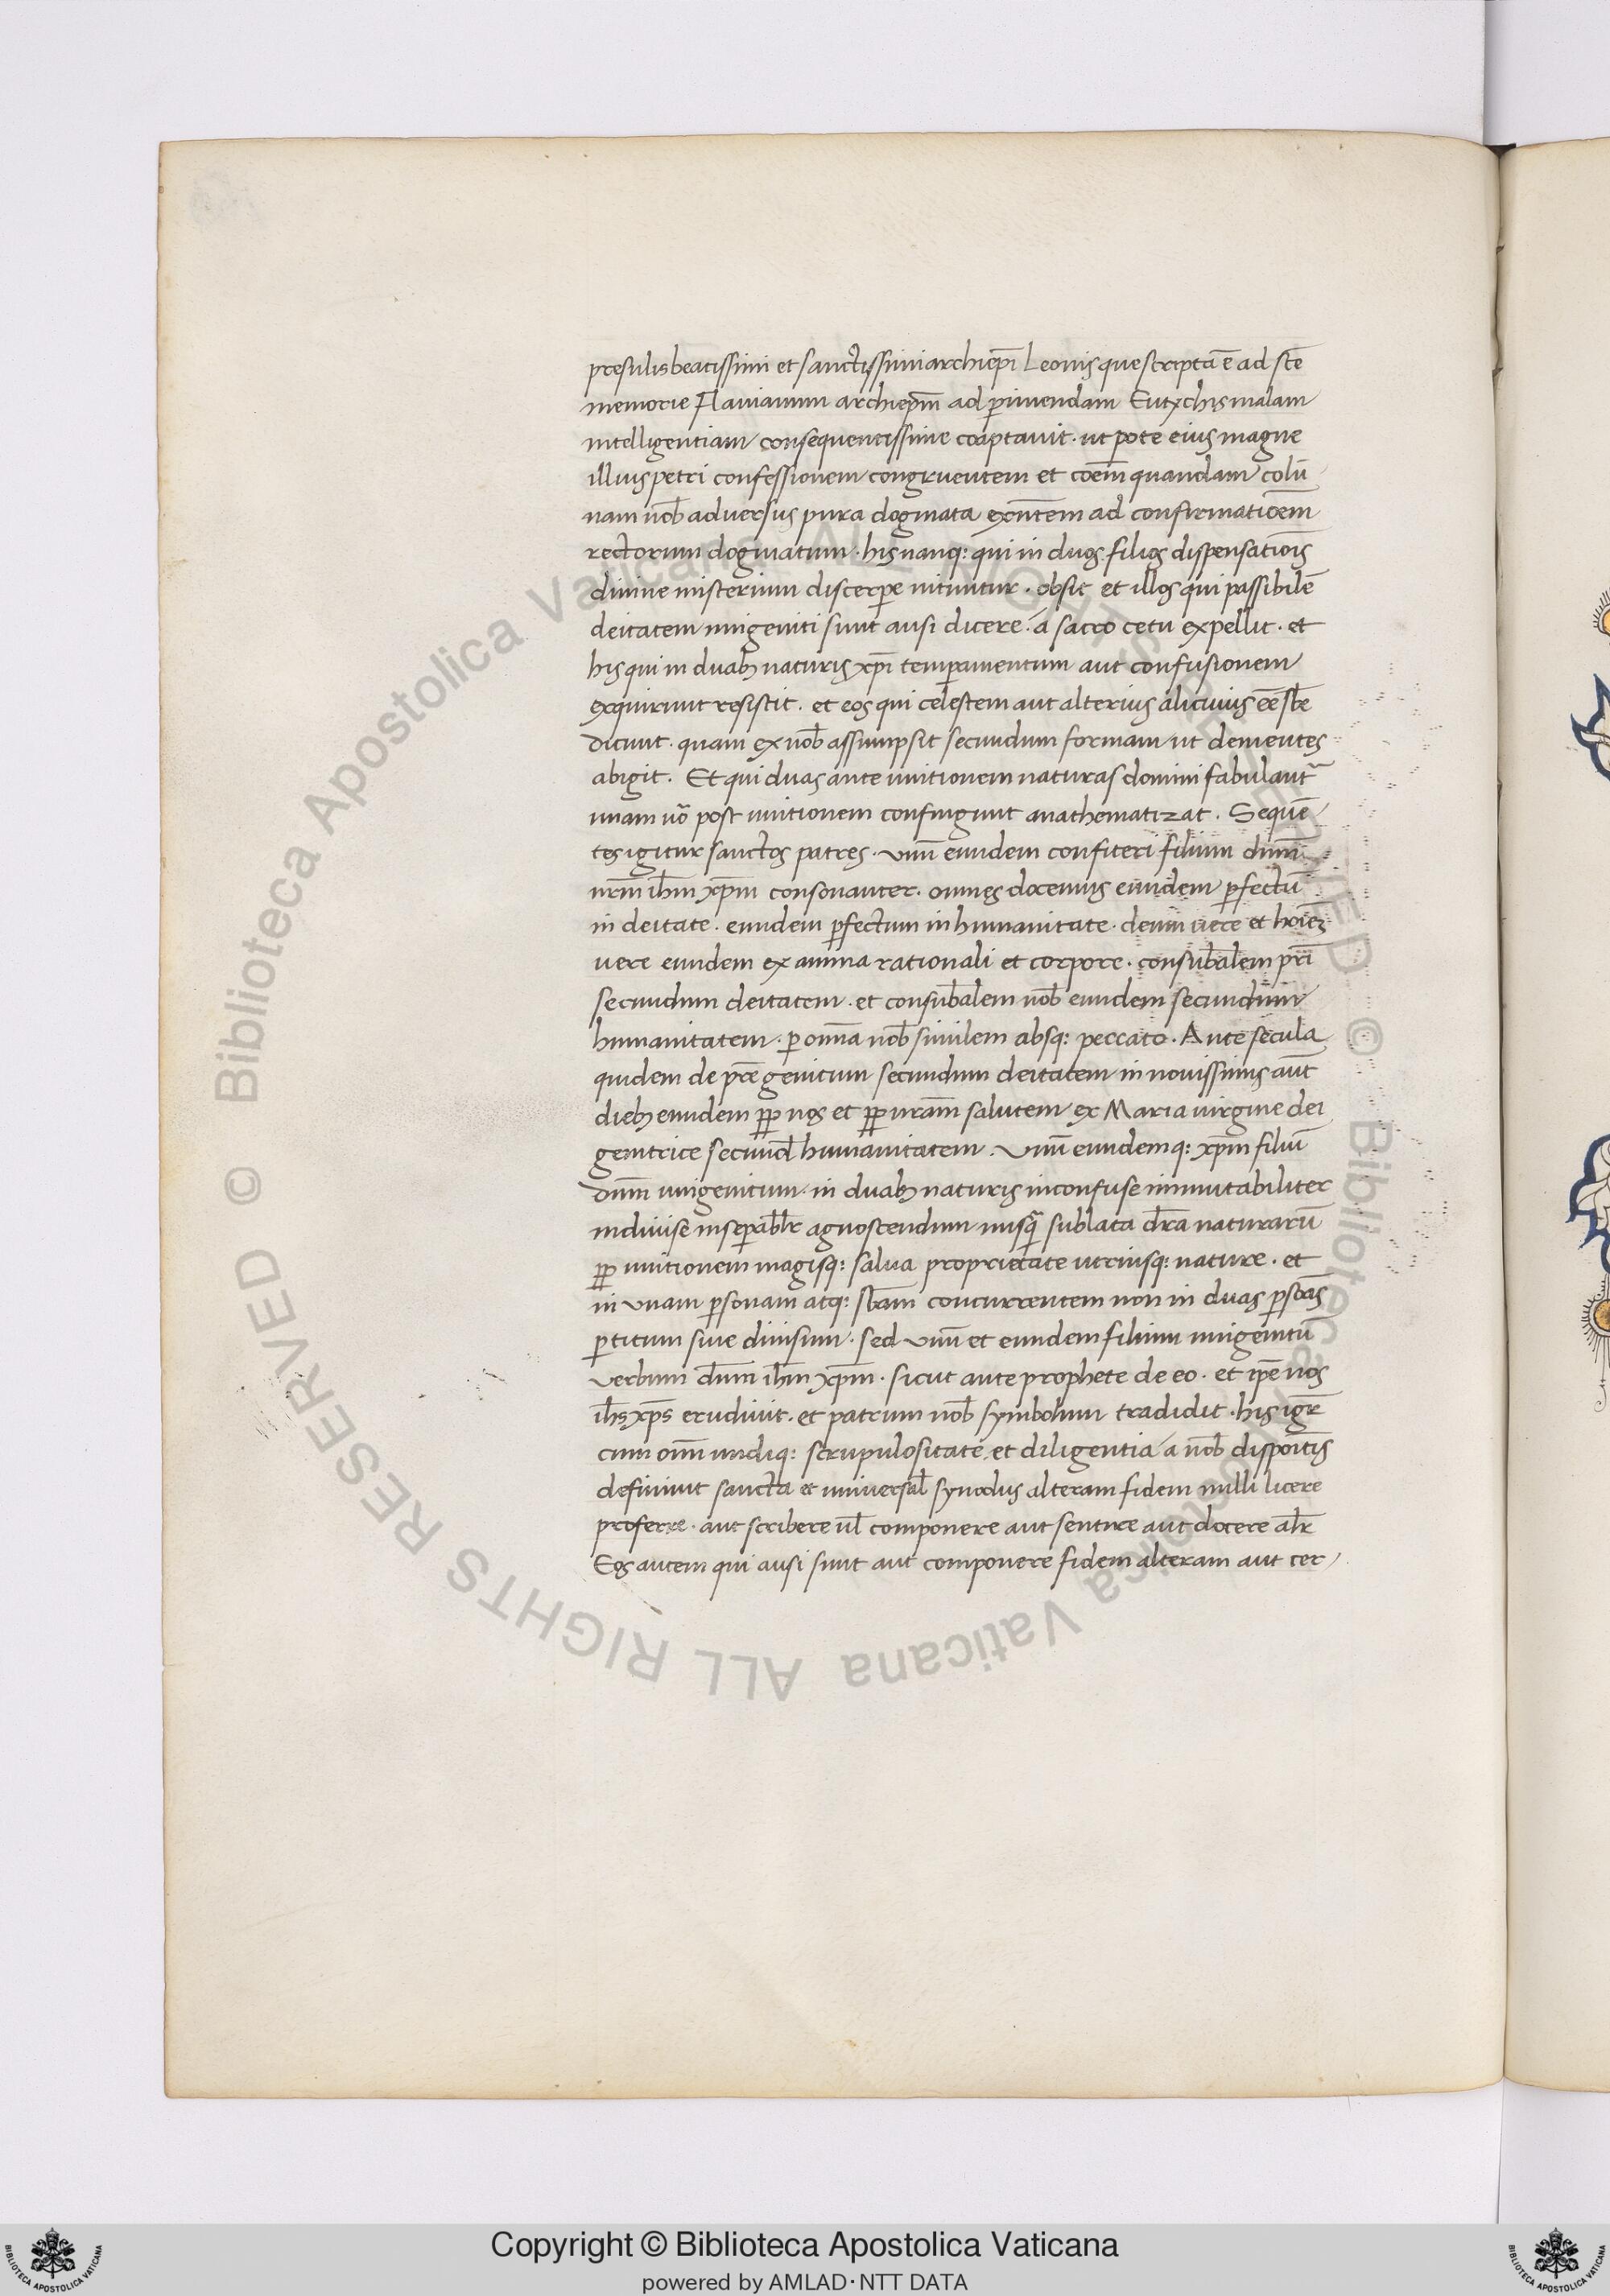 presulis beatissimi et sanctissimi archiep̄i Leonis que scripta ē ad stē
memorie Flavianum archiepm̄ ad perimendam Eutychis malam
intelligentiam consequentissime coaptavit · ut pote eius magne
illius petri confessionem congruentem et coēm quandam colū
nam nob̄ adversus pura dogmata exn̄tem ad confirmatiōem
rectorum dogmatum · his nanq: qui in duos filios dispensatiōis
divine misterium discerpere nituntur · obsit et illos qui passibilē
deitatem unigeniti sunt ausi dicere · á sacro cetu expellit · et
his qui in duab3 naturis xp̄i temperamentum aut confusionem
exquirunt resistit · et eos qui celestem aut alterius alicuius eē sb̄e
dicunt · quam ex nob̄ assumpsit secundum formam ut dementes
abigit · Et qui duas ante unitionem naturas domini fabulant̄
unam uō post unitionem confingunt anathematizat · Sequē
tes igitur sanctos patres · unū eundem confiteri filium dnm̄
nrm̄ ihm̄ xp̄m consonanter · omnes docemus eundem perfectū
in deitate · eundem perfectum in humanitate · deum vere et hoīez
vere eundem ex anima rationali et corpore · consub̄alem pr̄i
secundum deitatem · et consub̄alem nob̄ eundem secundum
humanitatem · per omn̄a nob̄ similem absq: peccato · Ante secula
quidem de pr̄e genitum secundum deitatem in novissimis aūt
dieb3 eundem pp̄ nos et pp̄ nrām salutem ex Maria virgine dei
genitrice secund̄ humanitatem · Unū eundemq: xp̄m filiū
dnm̄ unigenitum · in duab3 naturis inconfuse immutabiliter
indivise inseperab̄lr agnoscendum nusq̄ sublata dr̄a naturarū
pp̄ unitionem magisq: salva proprietate utriusq: nature · et
in unam personam atq: sb̄am concurrentem non in duas persōas
partitum sive divisum · sed unū et eundem filium unigenitū
verbum dnm̄ ihm̄ xp̄m · sicut ante prophete de eo · et ip̄e nos
ihs̄ xp̄s erudivit · et patrum nob̄ symbolum tradidit · his igr̄
cum omn̄i undiq: scrupulositate et diligentia a nob̄ dispoitis
definivit sancta et universal̄ synodus alteram fidem nulli licere
proferre · aut scribere ul̄ componere aut sentire aut docere alr̄
Eos autem qui ausi sunt aut componere fidem alteram aut cer
© Biblioteca Apostolica Vaticana ALL RIGHTS RESERVED © Biblioteca Apostolica Vaticana ALL RIGHTS RESERVED
Copyright © Biblioteca Apostolica Vaticana
powered by AMLAD·NTT DATA
BIBLIOTECA APOSTOLICA VATICANA
BIBLIOTECA APOSTOLICA VATICANA